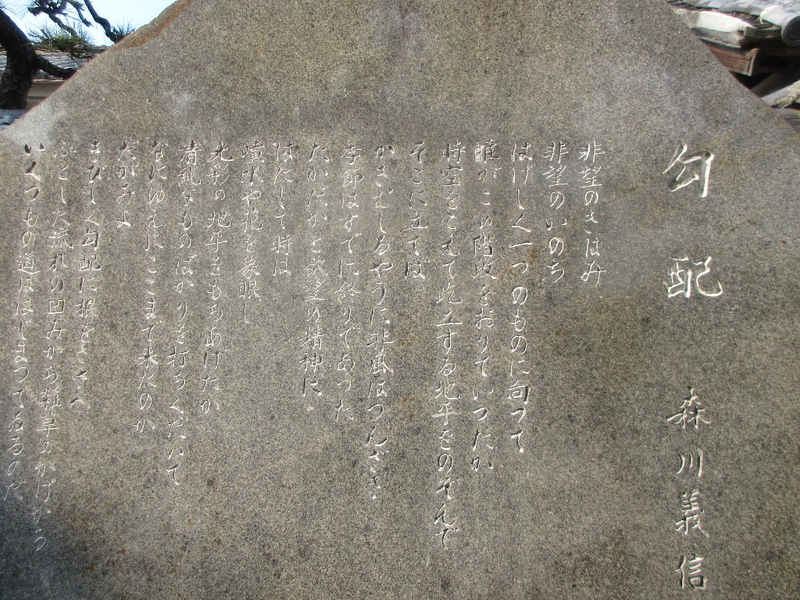 勾配
森川義信
非望のきはみ
非望のいのち
はげしく一つのものに向つて
誰がこの階段をおりていつたか
時空をこえて屹立する地平をのぞんで
そこに立てば
かきむしるやうに悲風はつんざき
季節はすでに終りであつた
たかだかと欲望の精神に
はたして時は
噴水や花を象眼し
光彩の地平をもちあげたか
清純なものばかりを打ちくだいて
なにゆゑにここまで来たのか
だがみよ
きびしく勾配に根をささへ
ふとした流れの凹みから雑草のかげから
いくつもの道ははじまつてゐるのだ